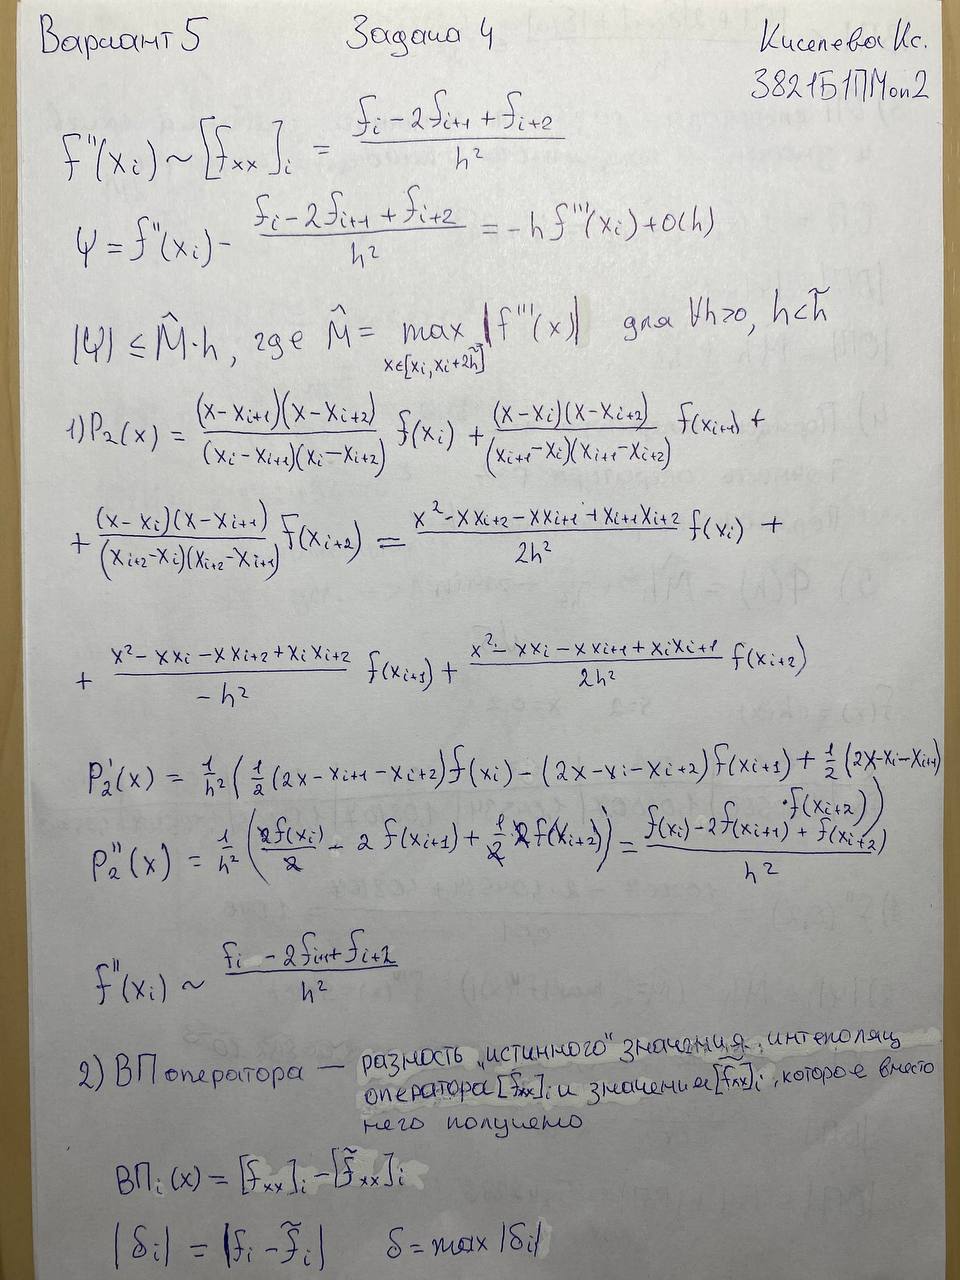 Вариант 5 Задача 4 Киселева Кс.
3821Б1ПМоп2
f''(xᵢ) ~ [fₓₓ]ᵢ = (fᵢ - 2fᵢ₊₁ + fᵢ₊₂)/h²
ψ = f''(xᵢ) - (fᵢ - 2fᵢ₊₁ + fᵢ₊₂)/h² = -h f'''(xᵢ) + o(h)
|ψ| ≤ M̂·h, где M̂ = max |f'''(x)| для ∀h>0, h<h̃
x∈[xᵢ, xᵢ+2h̃]
1) P₂(x) = (x-xᵢ₊₁)(x-xᵢ₊₂)/((xᵢ-xᵢ₊₁)(xᵢ-xᵢ₊₂)) f(xᵢ) + (x-xᵢ)(x-xᵢ₊₂)/((xᵢ₊₁-xᵢ)(xᵢ₊₁-xᵢ₊₂)) f(xᵢ₊₁) +
+ (x-xᵢ)(x-xᵢ₊₁)/((xᵢ₊₂-xᵢ)(xᵢ₊₂-xᵢ₊₁)) f(xᵢ₊₂) = (x²-xxᵢ₊₂-xxᵢ₊₁+xᵢ₊₁xᵢ₊₂)/2h² f(xᵢ) +
+ (x²-xxᵢ-xxᵢ₊₂+xᵢxᵢ₊₂)/-h² f(xᵢ₊₁) + (x²-xxᵢ-xxᵢ₊₁+xᵢxᵢ₊₁)/2h² f(xᵢ₊₂)
P₂'(x) = 1/h² (1/2 (2x-xᵢ₊₁-xᵢ₊₂) f(xᵢ) - (2x-xᵢ-xᵢ₊₂) f(xᵢ₊₁) + 1/2 (2x-xᵢ-xᵢ₊₁)
·f(xᵢ₊₂))
P₂''(x) = 1/h² (2f(xᵢ)/2 - 2f(xᵢ₊₁) + 1/2 2f(xᵢ₊₂)) = (f(xᵢ) - 2f(xᵢ₊₁) + f(xᵢ₊₂))/h²
f''(xᵢ) ~ (fᵢ - 2fᵢ₊₁ + fᵢ₊₂)/h²
2) ВП оператора — разность „истинного" значения интерполяц
оператора [fₓₓ]ᵢ и значения [f̃ₓₓ]ᵢ, которое вместо
него получено
ВПᵢ(x) = [fₓₓ]ᵢ - [f̃ₓₓ]ᵢ
|δᵢ| = |fᵢ - f̃ᵢ| δ = max |δᵢ|